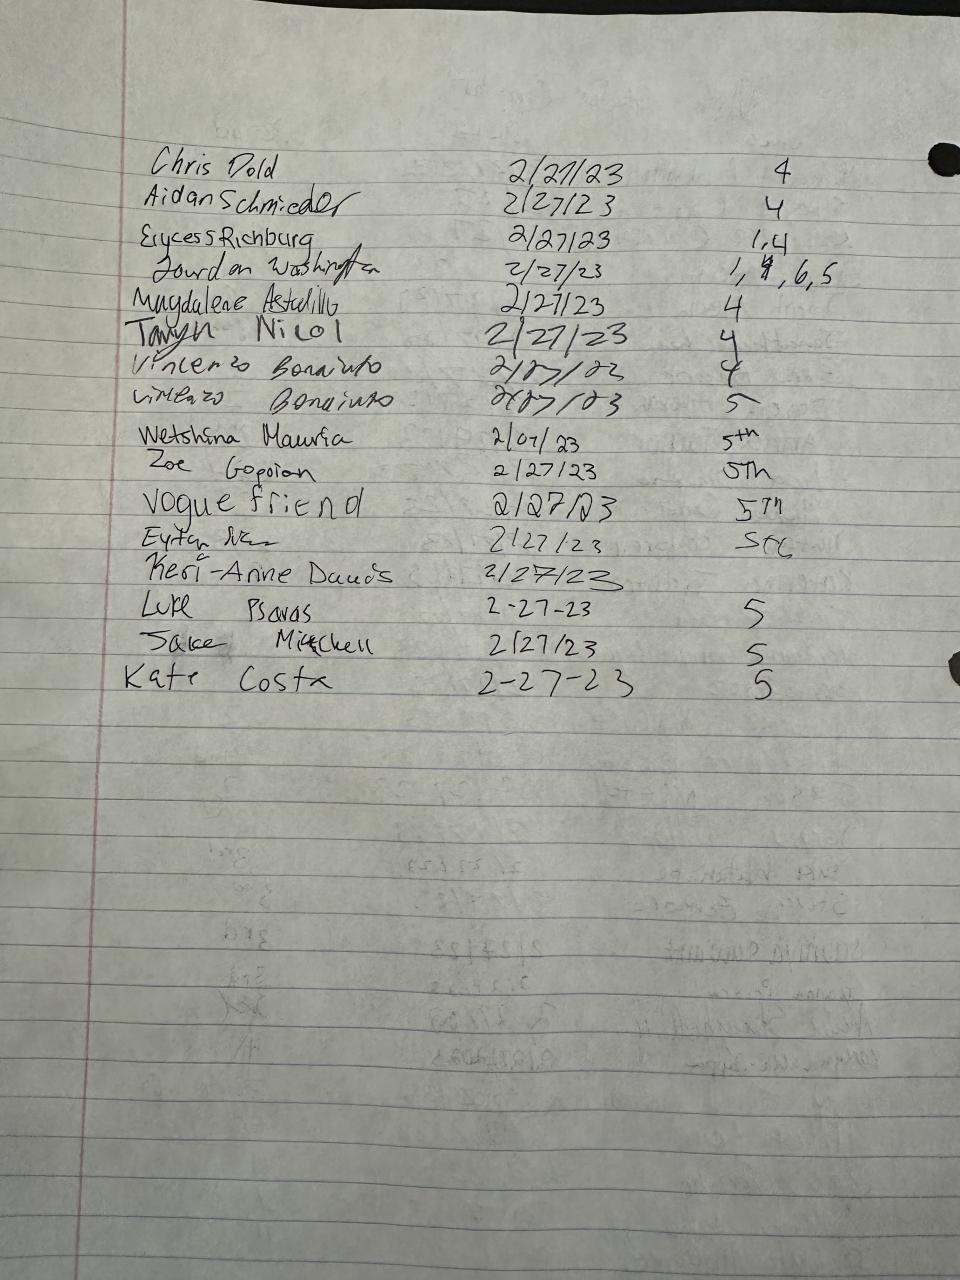 Chris Dold 2/27/23 4
Aidan Schmieder 2/27/23 4
Erycess Richburg 2/27/23 1,4
Jourdan Washington 2/27/23 1, 4, 6, 5
Magdalene Astudillo 2/27/23 4
Taryn Nicol 2/27/23 4
Vincenzo Bonaiuto 2/27/23 4
Vincenzo Bonaiuto 2/27/23 5
Wetshina Mauvia 2/27/23 5th
Zoe Gopoian 2/27/23 5th
Vogue friend 2/27/23 5Th
Eytan 2/27/23
Keri-Anne Dauois 2/27/23
Luke Psaras 2-27-23 5
Jake Mitchell 2/27/23 5
Kate Costa 2-27-23 5